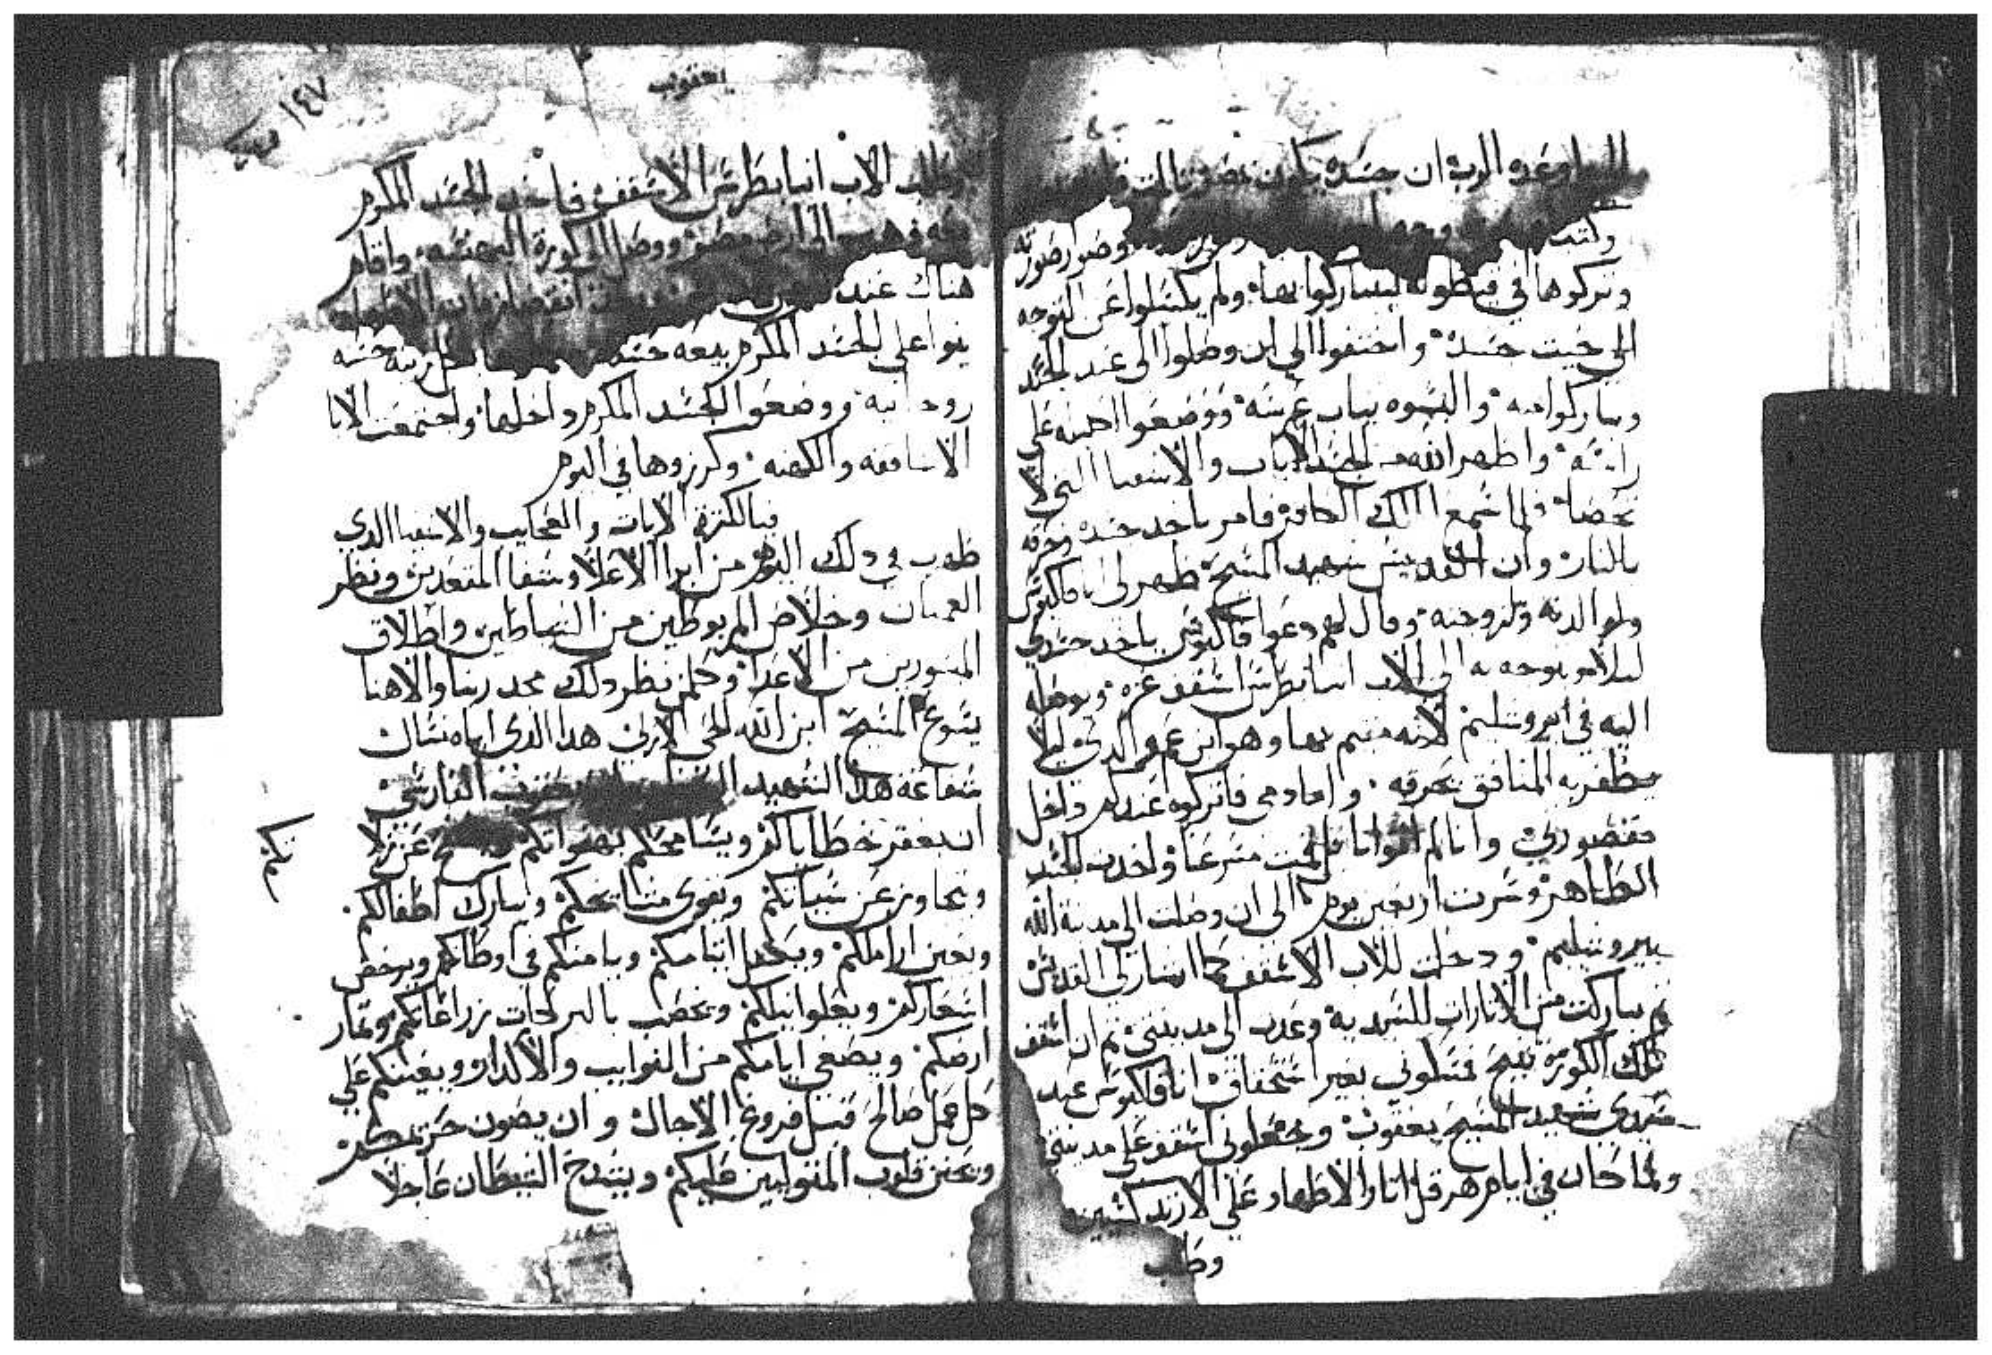 اوعده الرب ان جسده يكون
وكتب
وتركوها في قيطونه ليتباركوا بها ولم يكسلوا عن التوجه
الي حيث جسده واختفوا الي اين وصلوا الي عند الجسد
وتباركوا منه والبسوه تياب عرسه ووضعوا علي
راسه واظهر الله من الجسد الايات والاشفيا التي لا
تحصا فلما سمع الملك الكافر فامر باخد جسده وحرقه
بالنار وان القديس شهيد المسيح ظهر لي انا فاكيوس
ولوالدته ولزوجته وقال لهم دعوا فاكيوس ياخد جسدي
يتوجه به الي الاب انبا بطرس اسقف غزه
اليه في ايروشليم لانه مقيم بها وهو ابن عم الدي ليلا
يظفر به المنافق يحرقه واما دمي فاتركوه عندكم داخل
مقصورتي وانا لم اتوانا بل قمت مسرعا واخدت الجسد
الطاهر وسرت اربعين يوم الي ان وصلت الي مدينة الله
يروشليم ودخلت للاب الاسقف كما اشار لي القديس
تم تباركت من الاتارات السيديه وعدت الي مدينتي تم ان اسقف
تلك الكورة تنيح فمسكوني بغير استحقاق انا فاكيوس عبد
سيدي شهيد المسيح يعقوب وجعلوني اسقف علي مدينتي
ولما كان في ايام هرقل اتار الاظهاد علي الارتدكسيين
وطلب
يعقوب
١٤٧
وطلب الاب انبا بطرس الاسقف فاخد الجسد المكرم
الي ارض مصر ووصل الي كورة البهنسه واقام
هناك عند
بنوا علي الجسد المكرم بيعه حسنه بكل زينه حسنه
روحانيه ووضعوا الجسد المكرم داخلها واجتمعت الابا
الاساقفه والكهنه وكرزوها في اليوم
فيالكترة الايات والعجايب والاشفيا الدي
ظهرت في دلك اليوم من ابرا الاعلا وشفا المقعدين ونظر
العميان وخلاص المربوطين من الشياطين واطلاق
الماسورين من الاعدا وكلمن نظر دلك مجد ربنا والاهنا
يسوع المسيح ابن الله الحي الازلي هدا الدي اياه نسال
شفاعة هدا الشهيد يعقوب الفارسي
ان يغفر خطاياكم ويسامحكم بهفواتكم عن زلا
تكم
وتجاوز عن سياتكم ويقوي مشايخكم ويبارك اطفالكم
ويعين اراملكم ويكفل ايتامكم ويامنكم في اوطانكم ويرخص
اسعاركم ويعلوا نيلكم ويخصب بالبركات زراعاتكم وتمار
ارضكم ويصفي ايامكم من النوايب والاكدار ويعينكم علي
كل عمل صالح قبل فروغ الاجال وان يصون حريمكم
ويحنن قلوب المتوليين عليكم ويشدخ الشيطان عاجلا